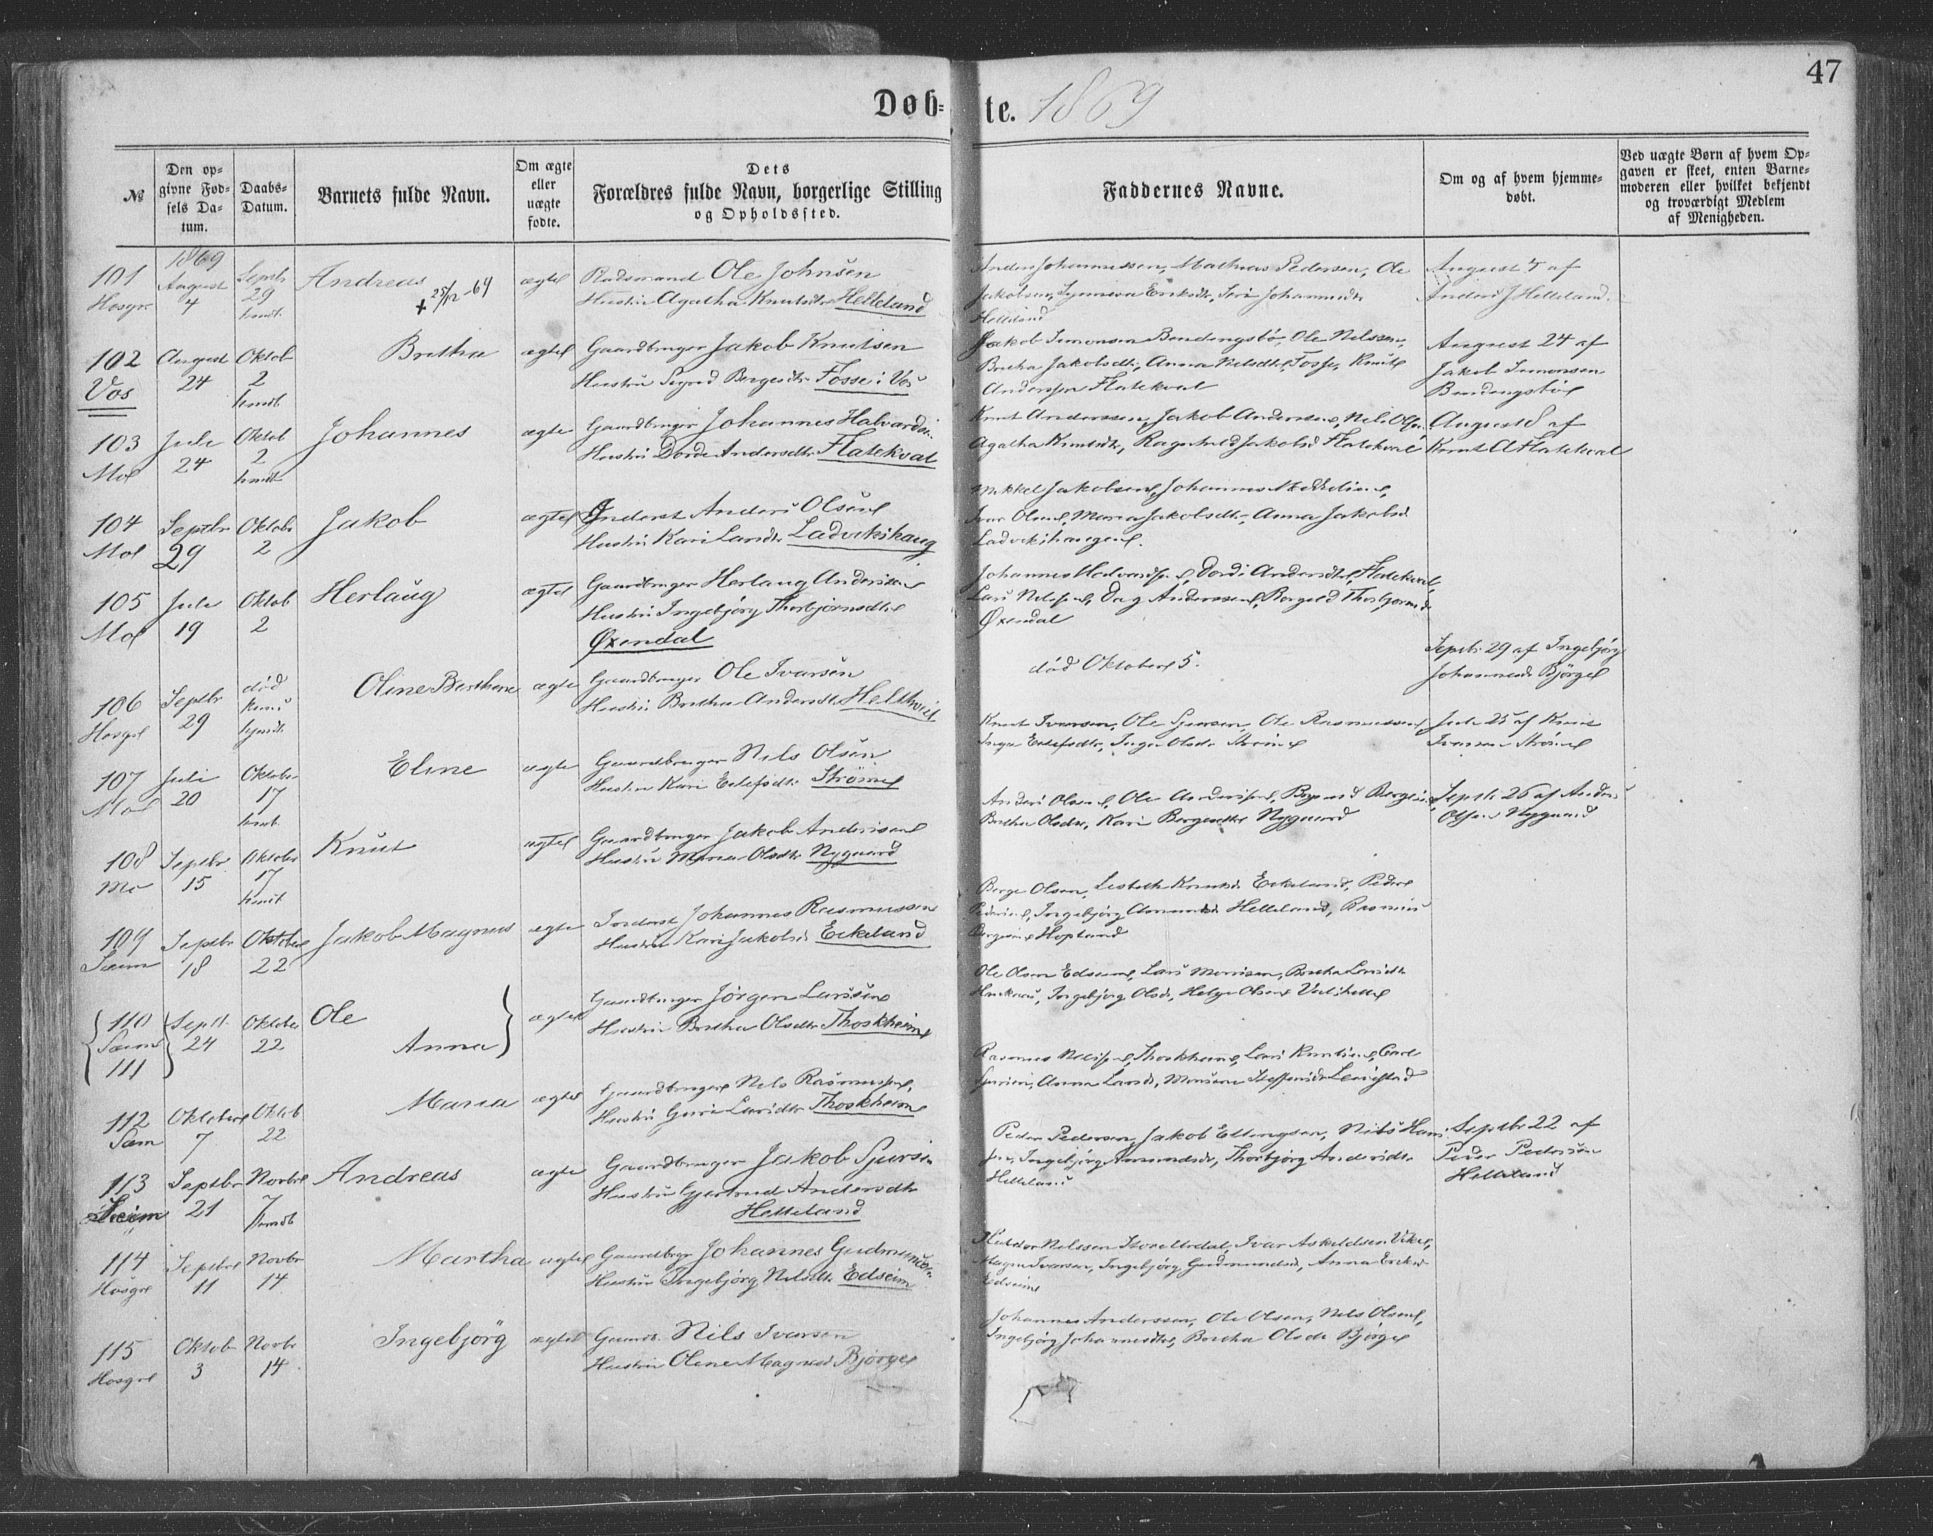 47
Døb= te. 1869
№
Den op-
givne Fød-
sels Da-
tum.
Daabs-
Datum.
Barnets fulde Navn.
Om ægte
eller
uægte
fødte.
Dets
Forældres fulde Navn, borgerlige Stilling
og Opholdssted.
Faddernes Navne.
Om og af hvem hjemme-
døbt.
Ved uægte Børn af hvem Op-
gaven er skeet, enten Barne-
moderen eller hvilket bekjendt
og troværdigt Medlem
af Menigheden.
101
Hosgr.
1869
August
4
Septbr
29
hmdt
Andreas
+ 25/12-69
ægte
Husmand Ole Johnsen
Hustru Agatha Knutsdtr Helleland
Anders Johannessen, Mathias Pedersen, Ole
Jakobsen, Synneva Eriksdtr, Siri Johannesdtr
Helleland
August 5 af
Anders J Helleland.
102
Vos
August
24
Oktob
2
hmdt
Bretha
ægte
Gaardbruger Jakob Knutsen
Hustru Sigrid Bergesdtr Fosse i Vos
Jakob Simonsen Bendingsbø, Ole Nilssen,
Bretha Jakobsdtr, Anna Nilsdtr Fosse, Knut
Anderssen Flatekval
August 24 af
Jakob Simonsen
Bendingsbø
103
Mo
Juli
24
Oktob
2
hmdt
Johannes
ægte
Gaardbruger Johannes Halvardsen
Hustru Dorde Andersdtr Flatekval
Knut Anderssen, Jakob Anderssen, Nils Olsen
Agatha Knutsdtr, Ragnhild Jakobsd Flatekval
August 8 af
Knut A Flatekval
104
Mo
Septbr
29
Oktobr
2
Jakob
ægte
Inderst Anders Olsen
Hustru Kari Larsdtr Ladvikshaug
Mikkel Jakobsen, Johannes Mikkelsen,
Ivar Olsen, Maria Jakobsdtr, Anna Jakobsd
Ladvikshaugen.
105
Mo
Juli
19
Oktob
2
Herlaug
ægte
Gaardbruger Herlaug Anderssen
Hustru Ingebjørg Thorbjørnsdtr
Øxendal
Johannes Halvardsen, Dordi Andersdtr Flatekval,
Lars Nilssen, Dag Anderssen, Borgild Thorbjørnsd
Øxendal
106
Hosgr
Septbr
29
død
hjmdt.
Oline Berthine
ægte
Gaardbruger Ole Ivarsen
Hustru Bretha Andersdtr Helltveit
død Oktober 5.
Septbr 29 af Ingebjørg
Johannesdtr Bjørge
107
Mo
Juli
20
Oktober
17
hmdt
Eline
ægte
Gaardbruger Nils Olsen
Hustru Kari Ellefsdtr Strøm
Knut Ivarsen, Ole Sjursen, Ole Rasmussen
Inga Ellefsdtr, Inger Olsdr Strøm
Juli 25 af Knut
Ivarsen Strøm
108
Mo
Septbr
15
Oktober
17
hmdt
Knut
ægte
Gaardbruger Jakob Andersen
Hustru Maria Olsdtr Nygaard
Anders Olsen, Ole Anderssen, Brynild Bergesen
Bretha Olsdtr, Kari Bergesdtr Nygaard
Septbr 26 af Anders
Olsen Nygaard
109
Sæim
Septbr
18
Oktober
22
Jakob Magnus
ægte
Inderst Johannes Rasmussen
Hustru Kari Jakobsd Eikeland
Berge Olsen, Lisbeth Knutsd Eikeland, Peder
Pedersen, Ingebjørg Amundsd Helleland, Rasmus
Bergesen Hopland
110
Sæim
111
Septb
24
Oktober
22
Ole
Anna
ægte
Gaardbruger Jørgen Larssen
Hustru Bretha Olsdtr Thoskheim
Ole Olsen Edseim, Lars Monsen, Bretha Larsdtr
Ingebjørg Olsd, Helge Olsen
Rasmus Nilssen, Thoskheim, Lars Knutsen, Carl
Anna Larsd,
112
Sæm
Oktober
7
Oktob
22
Maria
ægte
Gaardbruger Nils Rasmussen,
Hustru Guri Larsdtr Thoskheim
113
Seim
Septbr
21
Novbr
7
hmdt
Andreas
ægte
Gaardbruger Jakob Sjursen
Hustru Gjertrud Andersdtr
Helleland
Peder Pedersen, Jakob Ellingsen, Nils Han-
sen, Ingebjørg Amundsd, Thorbjørg Andersdtr
Helleland
Septbr 22 af
Peder Pedersen
Helleland
114
Hosgr
Septbr
11
Novbr
14
Martha
ægte
Gaardbrgr Johannes Gudmundsen
Hustru Ingebjørg Nilsdtr Edseim
Nilssen Ivar Askeldsen Vike,
Mogn Ivarsen, Ingebjørg Gudmundsd, Anna Eriksd
Edseim
115
Hosgr
Oktob
3
Novbr
14
Ingebjørg
ægte
Gaardb. Nils Ivarsen
Hustru Oline Magnesd Bjørge
Johannes Anderssen, Ole Olsen, Nils Olsen,
Ingebjørg Johannesdtr, Bretha Olsdr Bjørge